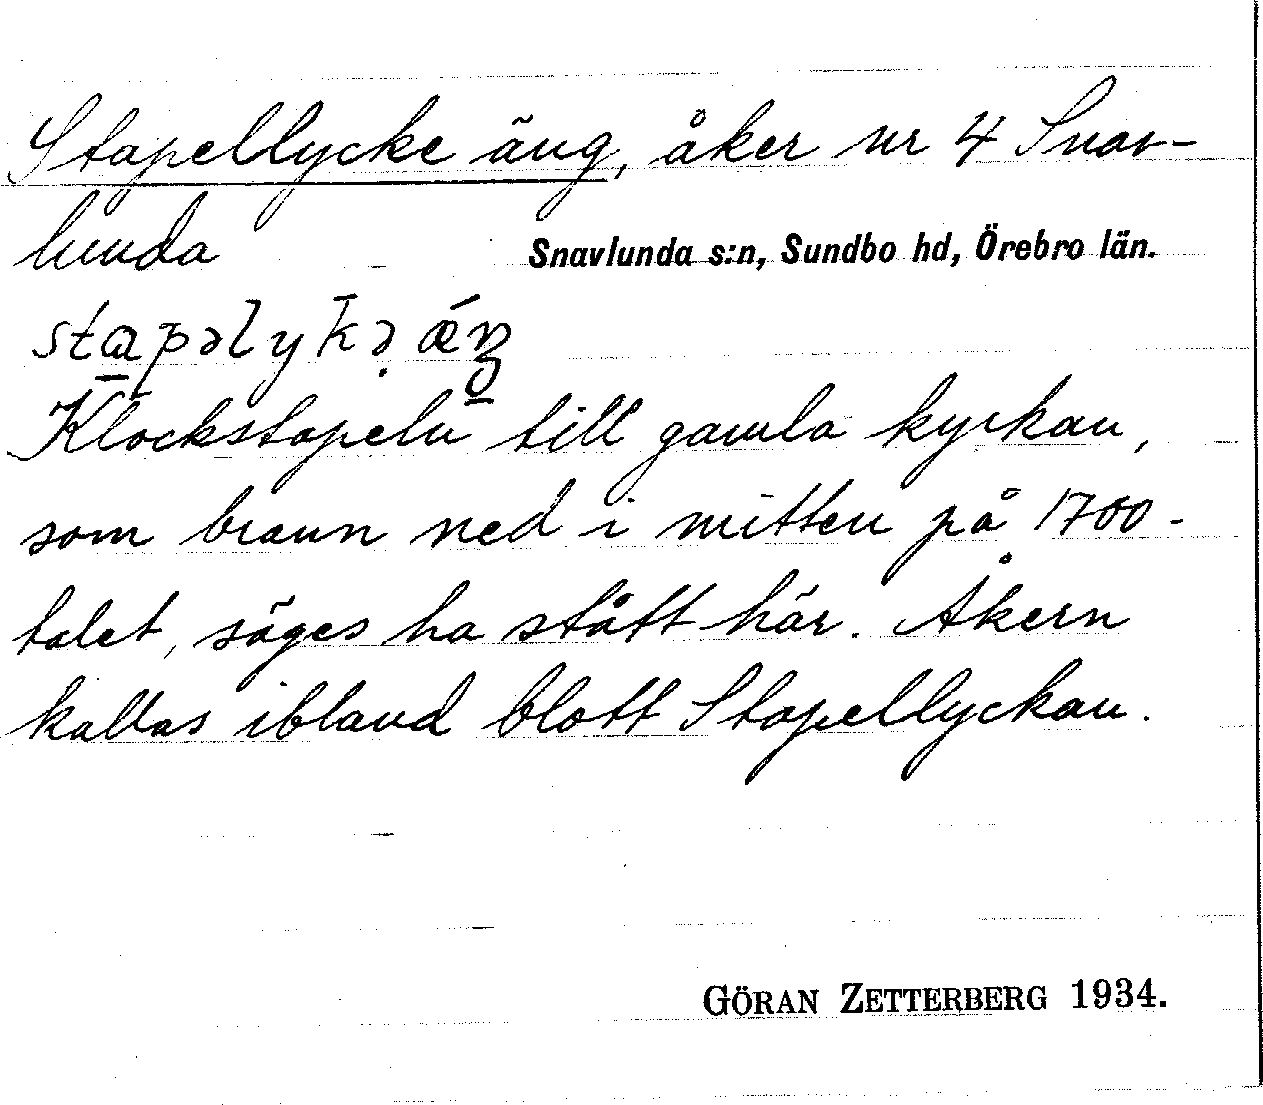 Stapellycke äng, åker nr 4 Snav-
lunda
Snavlunda s:n, Sundbo hd, Örebro län.
stapəlykə ǽŋ
Klockstapeln till gamla kyrkan,
som brann ned i mitten på 1700-
talet, säges ha stått här. Åkern
kallas ibland blott Stapellyckan.
GÖRAN ZETTERBERG 1934.